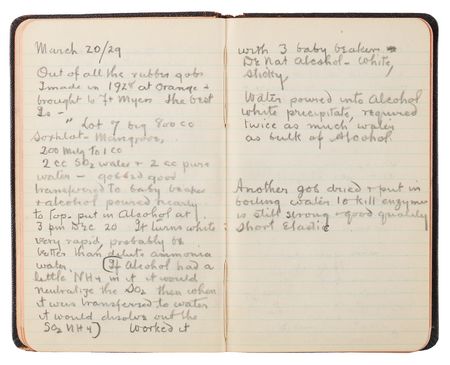 March 20/29
Out of all the rubber gobs
I made in 1928 at Orange &
brought to Ft Myers the best
is —
" Lot 7 big 800 cc
Soxhlet - Mangrove,
200 Mg to 1 cc
2 cc SO2 water + 2 cc pure
water — gobbed good
transferred to baby beaker
+ alcohol poured nearly
to top. put in Alcohol at
3 pm Dec 20 It turns white
very rapid, probably be
better than dilute ammonia
water. If Alcohol had a
little NH4 in it it would
neutralize the SO2 then when
it was transferred to water
it would disolve out the
SO2 NH4) Worked it
with 3 baby beakers —
De Nat Alcohol - White,
sticky,
Water poured into Alcohol
white precipitate, required
twice as much water
as bulk of Alcohol
Another gob dried & put in
boiling water to kill enzymes
is still strong & good quality
short Elastic